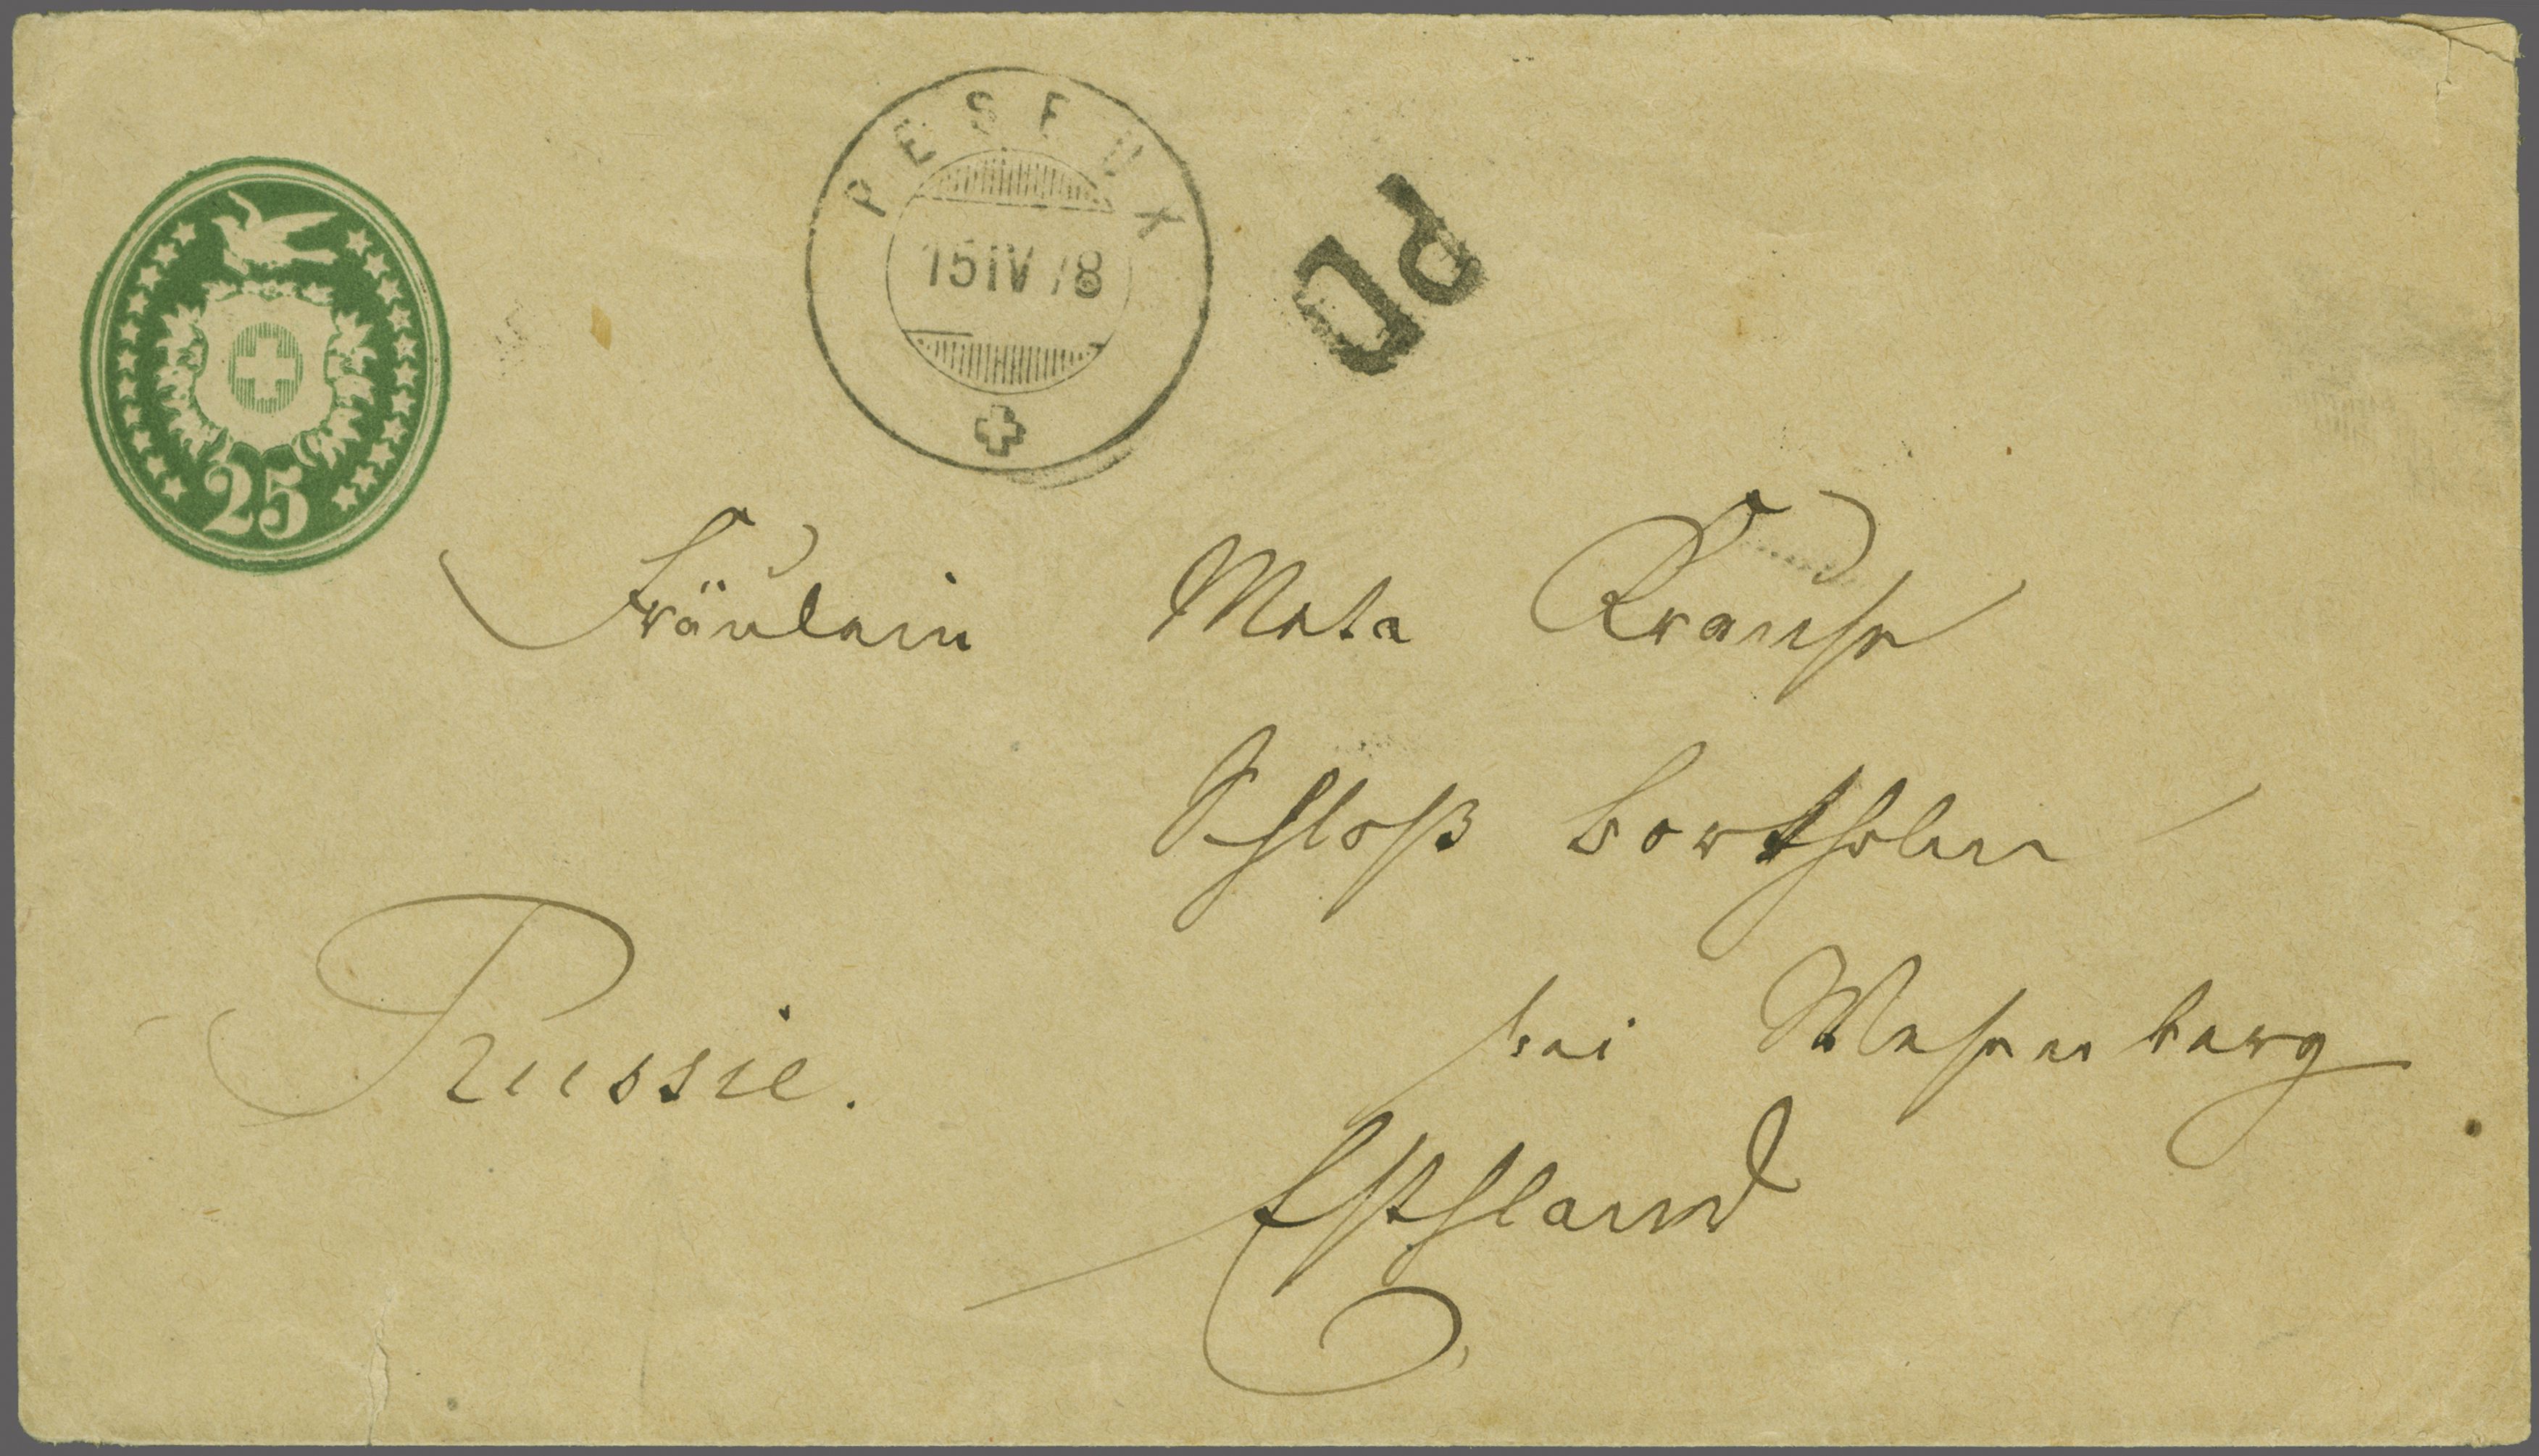 PESEUX
15 IV 78
PD
25
Fräulein Meta Krause
Schloß Borkholm
bei Wesenberg
Russie.
Esthland